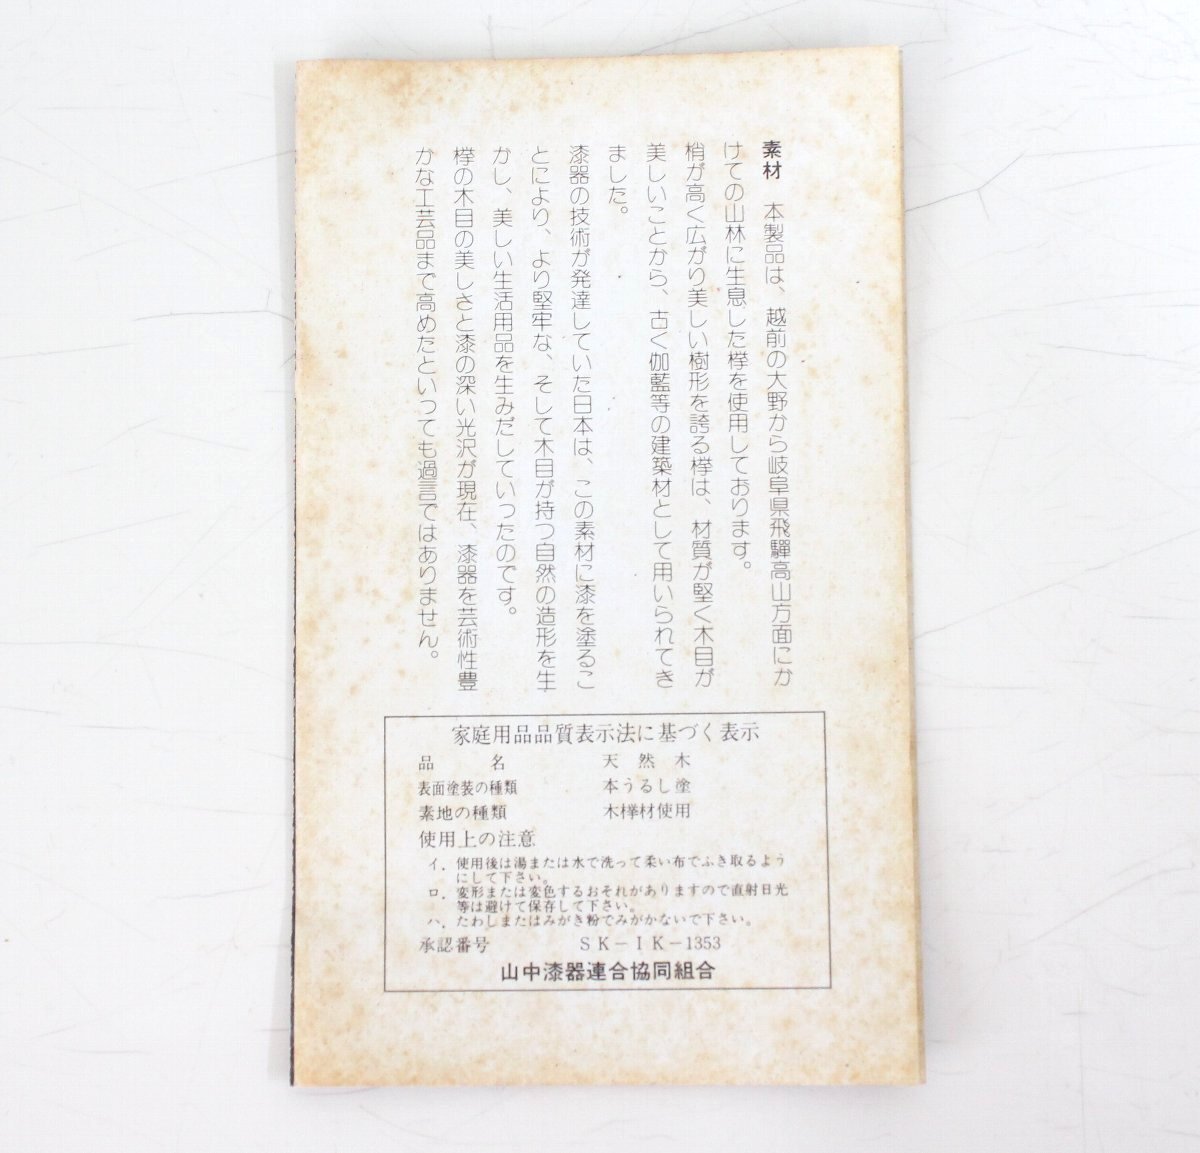 素材　本製品は、越前の大野から岐阜県飛騨高山方面にか
けての山林に生息した欅を使用しております。
梢が高く広がり美しい樹形を誇る欅は、材質が堅く木目が
美しいことから、古く伽藍等の建築材として用いられてき
ました。
漆器の技術が発達していた日本は、この素材に漆を塗るこ
とにより、より堅牢な、そして木目が持つ自然の造形を生
かし、美しい生活用品を生みだしていったのです。
欅の木目の美しさと漆の深い光沢が現在、漆器を芸術性豊
かな工芸品まで高めたといっても過言ではありません。
家庭用品品質表示法に基づく表示
品名　天然木
表面塗装の種類　本うるし塗
素地の種類　木欅材使用
使用上の注意
イ．使用後は湯または水で洗って柔い布でふき取るよう
にして下さい。
ロ．変形または変色するおそれがありますので直射日光
等は避けて保存して下さい。
ハ．たわしまたはみがき粉でみがかないで下さい。
承認番号　SK－IK－1353
山中漆器連合協同組合